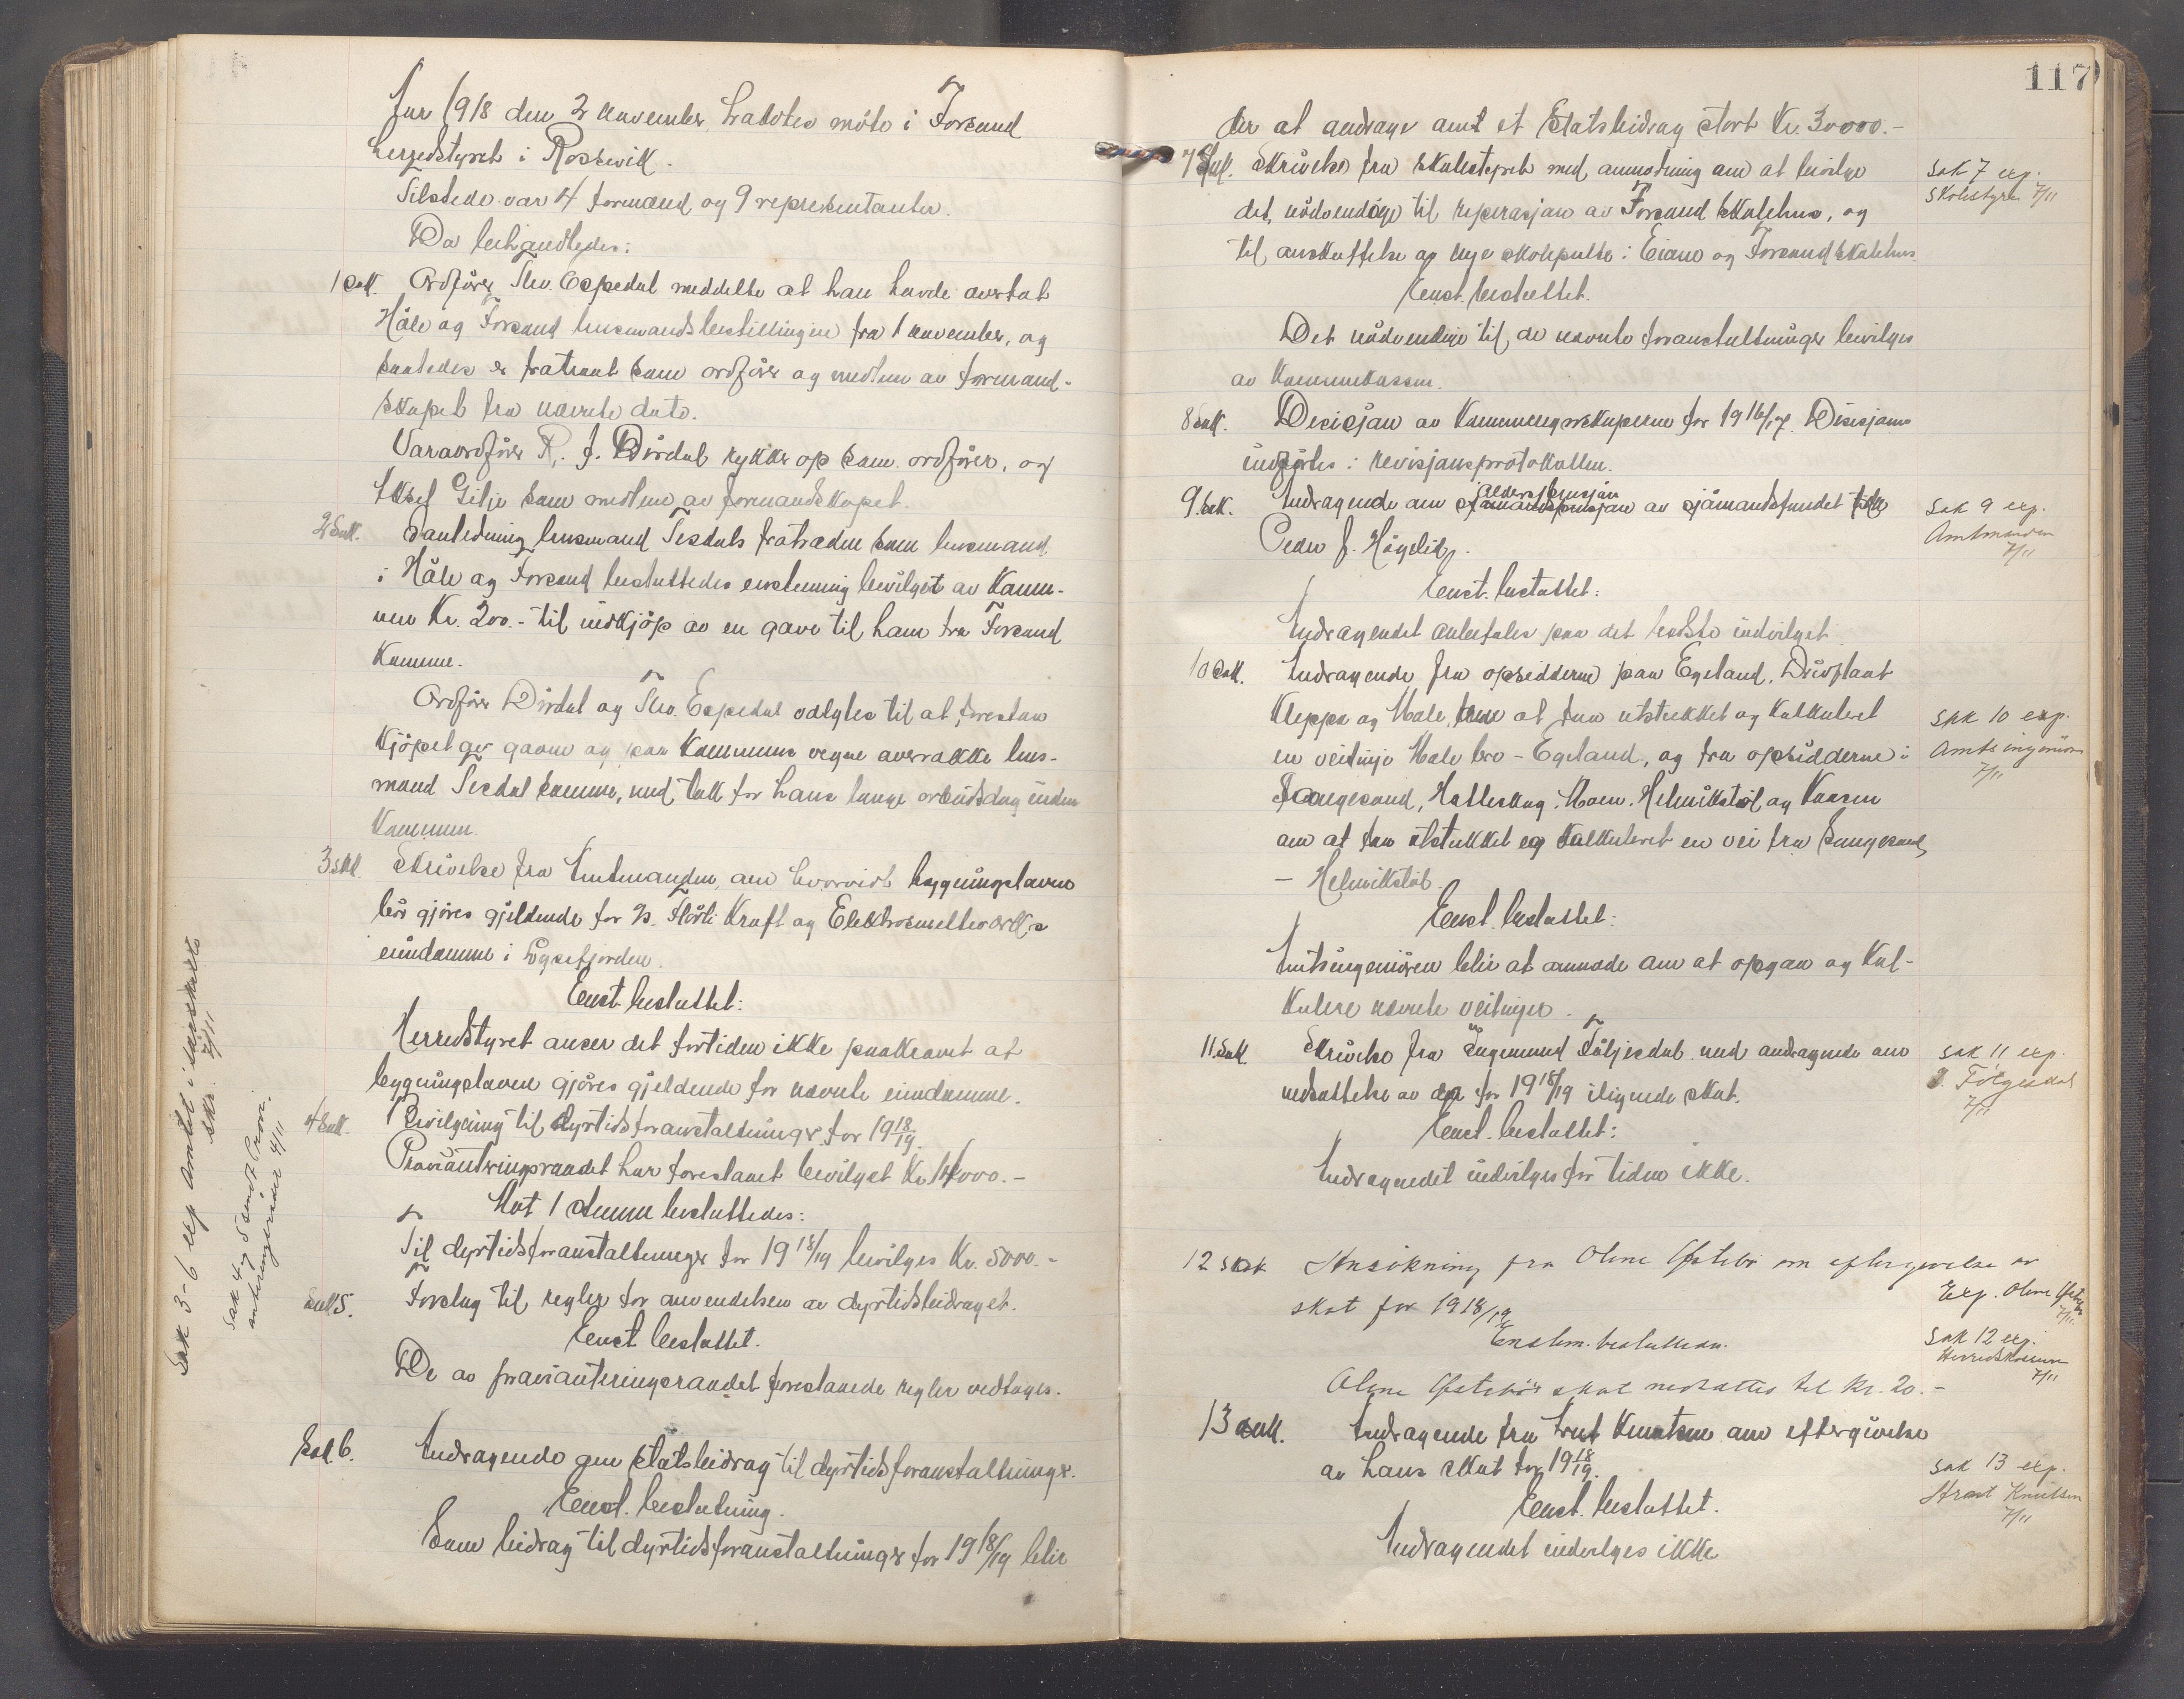 Aar 1918 den 2 november holdtes möte i Forsand
herredstyret i Rossevik.
Tilstede var 4 formænd og 9 representanter.
Da behandledes:
1 Sak. Ordförer Thv. Espedal meddelte at han havde overtat
Höle og Forsand lensmandsbestillingen fra 1 november, og
saaledes er fratraat som ordförer og medlem av formand-
skapet fra nævnte dato.
Varaordförer R. J. Dirdal rykker op som ordförer, og
Aksel Gilje som medlem av formandskapet.
2 Sak. I anledning lensmand Tesdals fratræden som lensmand
i Höle og Forsand besluttedes enstemmig bevilget av Kommu-
nen Kr. 200.- til indkjöp av en gave til ham fra Forsand
Kommune.
Ordförer Dirdal og Thv. Espedal valgtes til at forestaa
Kjöpet av gaven og paa Kommunens vegne overrække lens-
mand Tesdal samme, med takk for hans lange arbeidsdag inden
Kommunen.
3 Sak. Skrivelse fra Amtmanden, om hvorvidt bygningsloven
bör gjöres gjeldende for A/s. Flörli Kraft og Elektrosmelteverk's
eiendomme i Lysefjorden.
Enst. besluttet:
Herredstyret anser det fortiden ikke paakrævet at
bygningsloven gjöres gjeldende for nævnte eiendomme.
4 Sak. Bevilgning til dyrtidsforanstaltninger for 1918/19.
Provianteringsraadet har foreslaaet bevilget Kr. 14000.-
Mot 1 stemme besluttedes:
Til dyrtidsforanstaltninger for 1918/19 bevilges Kr. 5000.-
Sak 5. Forslag til regler for anvendelsen av dyrtidsbidraget.
Enst. besluttet.
De av provianteringsraadet foreslaaede regler vedtages.
Sak 6. Andragende om statsbidrag til dyrtidsforanstaltninger.
Enst. beslutning.
Som bidrag til dyrtidsforanstaltninger for 1918/19 blir
Sak 3-6 exp Amtet i
7/11
Sak 4 og 5 sendt Provi-
anteringsraadet 7/11
117
der at andrage amt et Statsbidrag stort Kr. 30000.-
7 Sak. Skrivelse fra Skolestyret med anmodning om at bevilge
det nödvendige til reperasjon av Forsand Skolehus, og
til anskaffelse av nye skolepulte i Eiane og Forsand Skolehus.
Enst. besluttet.
Det nödvendige til de nævnte foranstaltninger bevilges
av Kommunekassen.
Sak 7 exp.
Skolestyret 7/11
8 Sak. Decisjon av Kommuneregnskaperne for 1916/17. Decisjonen
indförtes i revisjonsprotokollen.
9. Sak. Andragende om alderspensjon av sjömandsfondet til
Peder J. Högelid.
Enst. besluttet:
Andragendet anbefales paa det bedste indvilget
Sak 9 exp.
Amtmanden
7/11
10 Sak. Andragende fra opsidderne paa Egeland, Drivflaat
Kleppa og Hole, om at faa utstukket og Kalkuleret
en veilinje Hole bro - Egeland, og fra opsidderne i
Songesand, Hatleskog, Moen, Helmikstöl og Kaasen
om at faa utstukket og Kalkuleret en vei fra Songesand
- Helmikstöl.
Enst. besluttet:
Amtsingeniören blir at anmode om at opgaa og Kal-
kulere nævnte veilinjer.
Sak 10 exp.
Amtsingeniören
7/11
11. Sak. Skrivelse fra Ingemund Fölgesdal med andragende om
nedsættelse av den for 1918/19 ilignede skat.
Enst. besluttet:
Andragendet indvilges for tiden ikke.
Sak 11 exp.
I. Fölgesdal
7/11
12 Sak Ansökning fra Olene Ofstebö om eftergivelse av
skat for 1918/19
Enstem. besluttedes.
Olene Ofstebös skat nedsattes til Kr. 20.-
Exp. Olene Ofstebö
7/11.
Sak 12 exp.
Herredskassereren
7/11
13 Sak. Andragende fra Knutsen om eftergivelse
av hans skat for 1918/19.
Enst. besluttet.
Andragendet indvilges ikke
Sak 13 exp.
Knutsen
7/11